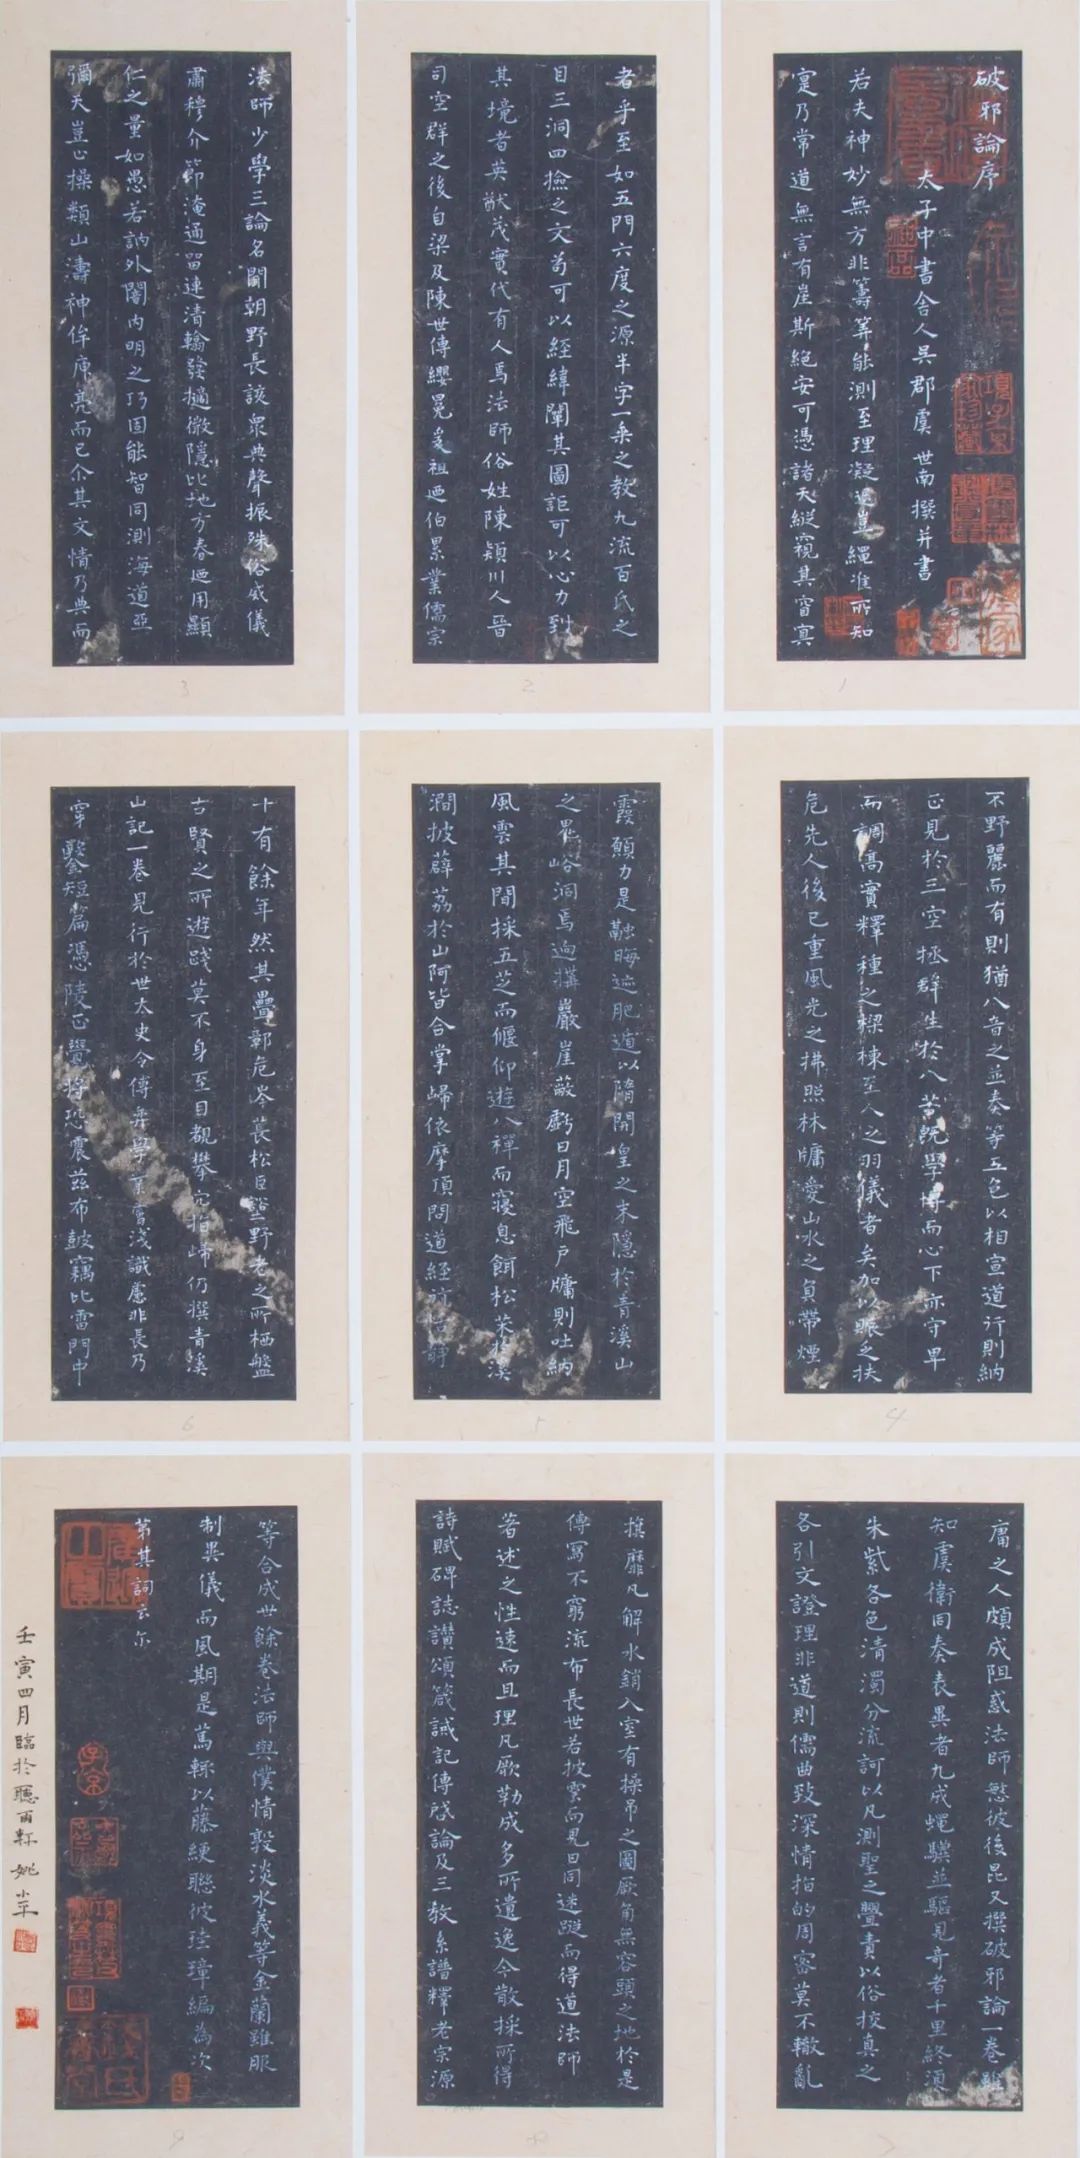 破邪論序
太子中書舍人吳郡虞世南撰并書
若夫神妙無方非籌筭能測至理凝邈豈繩准所知
寔乃常道無言有崖斯絕安可憑諸天縱窺其窅寘
1
者乎至如五門六度之源半字一乘之教九流百氏之
目三洞四撿之文苟可以經緯闡其圖詎可以心力到
其境者英猷茂實代有人焉法師俗姓陳潁川人晉
司空群之後自梁及陳世傳纓冕爰祖迺伯累業儒宗
2
法師少學三論名聞朝野長該眾典聲振殊俗威儀
肅穆介節淹通留連清翰發擿微隱比地方春迺用顯
仁之量如愚若訥外闇內明之巧固能智同測海道亞
彌天豈止操類山濤神侔庾亮而已余其文情乃典而
3
不野麗而有則猶八音之並奏等五色以相宣道行則納
正見於三空拯群生於八苦既學博而心下亦守卑
而調高實釋種之樑棟至人之羽儀者矣加以賑乏扶
危先人後已重風光之拂照林牖愛山水之負帶煙
4
霞願力是融晦迹肥遁以隋開皇之末隱於青溪山
之鬼谷洞焉迥搆巖崖蔽虧日月空飛戶牖則吐納
風雲其間採五芝而偃仰遊八禪而寢息餌松葉於溪
澗披薜荔於山阿皆合掌歸依摩頂問道經行宴靜
5
十有餘年然其疊鄣危岑長松巨壑野老之所栖盤
古賢之所遊踐莫不身至目觀攀穴指歸仍撰青溪
山記一卷見行於世太史令傅弈學業膚淺識慮非長乃
穿鑿短篇憑陵正覺將恐震茲布鼓竊比雷門中
6
庸之人頗成阻惑法師愍彼後昆又撰破邪論一卷雖
知虞衛同奏表異者九成蠅驥並驅見奇者千里終須
朱紫各色清濁分流訶以凡測聖之舋責以俗挍真之
各引文證理非道則儒曲致深情指的周密莫不轍亂
7
旗靡凡解水銷入室有操吊之圖厥角無容頭之地於是
傳寫不窮流布長世若披雲而見日同迷蹤而得道法師
著述之性速而且理凡厥勒成多所遺逸今散採所得
詩賦碑誌讚頌箴誡記傳啟論及三教系譜釋老宗源
8
等合成世餘卷法師與僕情敦淡水義等金蘭雖服
制異儀而風期是篤輒以藤綀聯彼珪璋編為次
第其詞云尒
壬寅四月臨於聽雨軒 姚小平
9